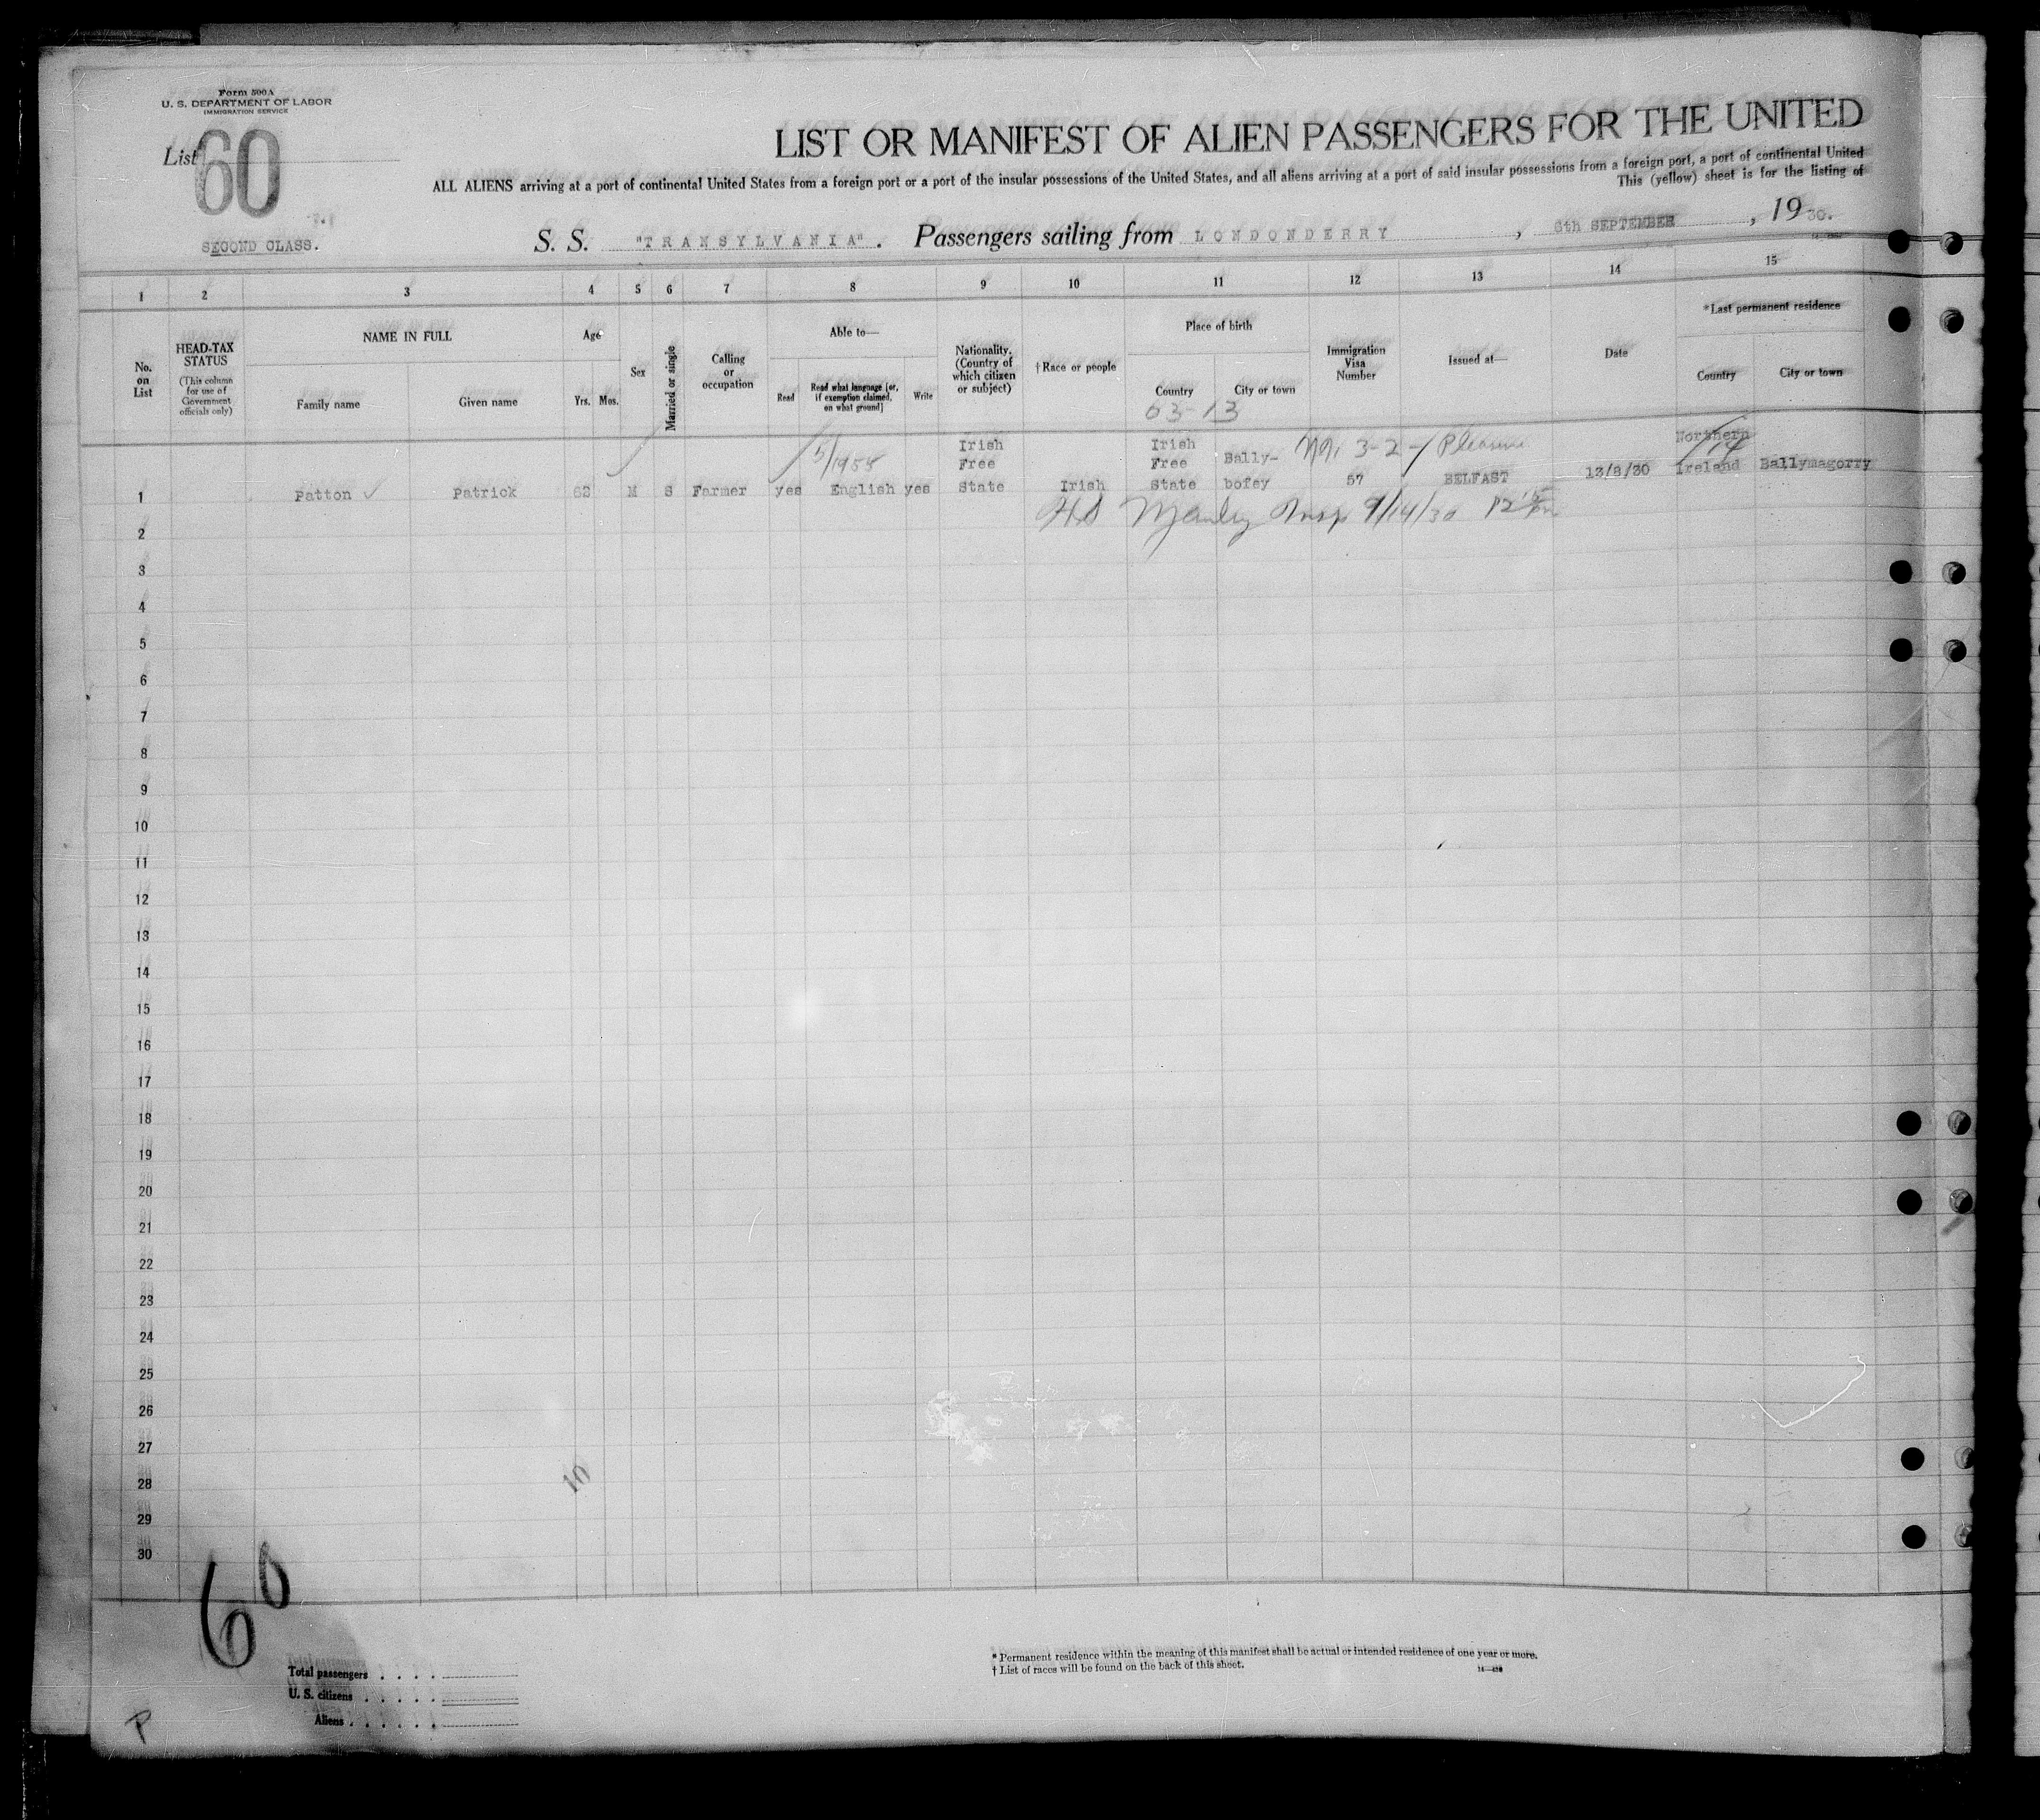 Form 500A
U. S. DEPARTMENT OF LABOR
IMMIGRATION SERVICE
List 60
LIST OR MANIFEST OF ALIEN PASSENGERS FOR THE UNITED
ALL ALIENS arriving at a port of continental United States from a foreign port or a port of the insular possessions of the United States, and all aliens arriving at a port of said insular possessions from a foreign port, a port of continental United
This (yellow) sheet is for the listing of
SECOND CLASS.
S. S. "TRANSYLVANIA". Passengers sailing from LONDONDERRY, 6th SEPTEMBER, 1930.
1 2 3 4 5 6 7 8 9 10 11 12 13 14 15
No. on List
HEAD-TAX STATUS
(This column for use of Government officials only)
NAME IN FULL
Family name
Given name
Age
Yrs. Mos.
Sex
Married or single
Calling or occupation
Able to—
Read
Read what language [or, if exemption claimed, on what ground]
Write
Nationality. (Country of which citizen or subject)
†Race or people
Place of birth
Country
City or town
03-13
Immigration Visa Number
Issued at—
Date
*Last permanent residence
Country
City or town
5/1955
3-2-
Pleasure
14
1 Patton Patrick 62 M S Farmer yes English yes Irish Free State Irish Irish Free State Bally-bofey 57 BELFAST 13/8/30 Northern Ireland Ballymagorry
Manley Insp 9/14/30
2
3
4
5
6
7
8
9
10
11
12
13
14
15
16
17
18
19
20
21
22
23
24
25
26
27
28
29
30
10
60
Total passengers . . . .
U. S. citizens . . . . .
Aliens . . . . . .
P
* Permanent residence within the meaning of this manifest shall be actual or intended residence of one year or more.
† List of races will be found on the back of this sheet.